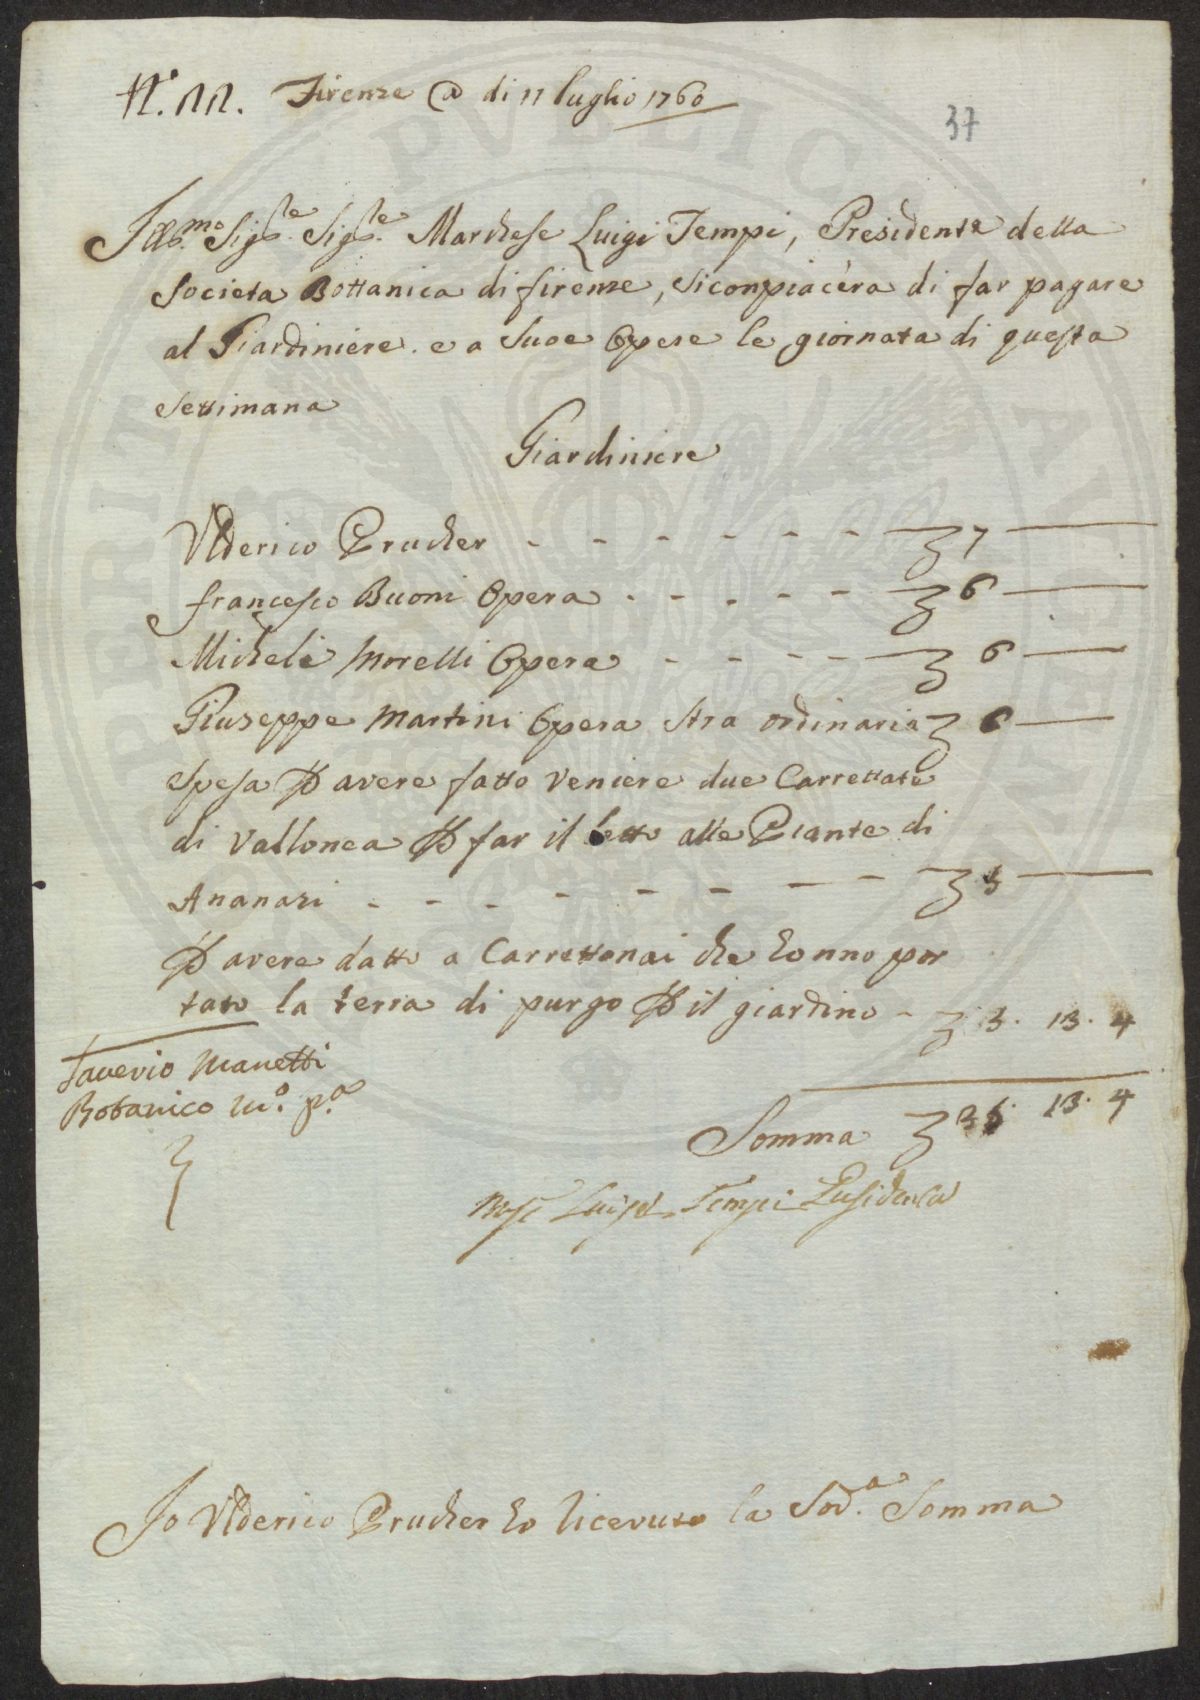 N.° 22. Firenze @ di 11 luglio 1760
37
Ill.mo Sig.re Sig.re Marchese Luigi Tempi, Presidente della
Societa Bottanica di firenze, si conpiacèra di far pagare
al Giardiniere. e a Suoe Opere le giornata di questa
settimana
Giardiniere
Vlderico Prucher - - - - - - 7
francesco Buoni Opera - - - - - 6
Michele Morelli Opera - - - - 6
Giuseppe Martini Opera stra ordinaria 6
Spesa P avere fatto veniere due Carrettate
di Vallonea P far il letto alle Piante di
Ananari - - - - - - - 5
P avere datto a Carrettonai che honno por
tato la terra di purgo P il giardino - 3. 13. 4
Saverio Manetti
Botanico m.° p.a
Somma 13. 4
Luigi Tempi Presidente
Io Vlderico Prucher ho ricevuto la Sod.a Somma